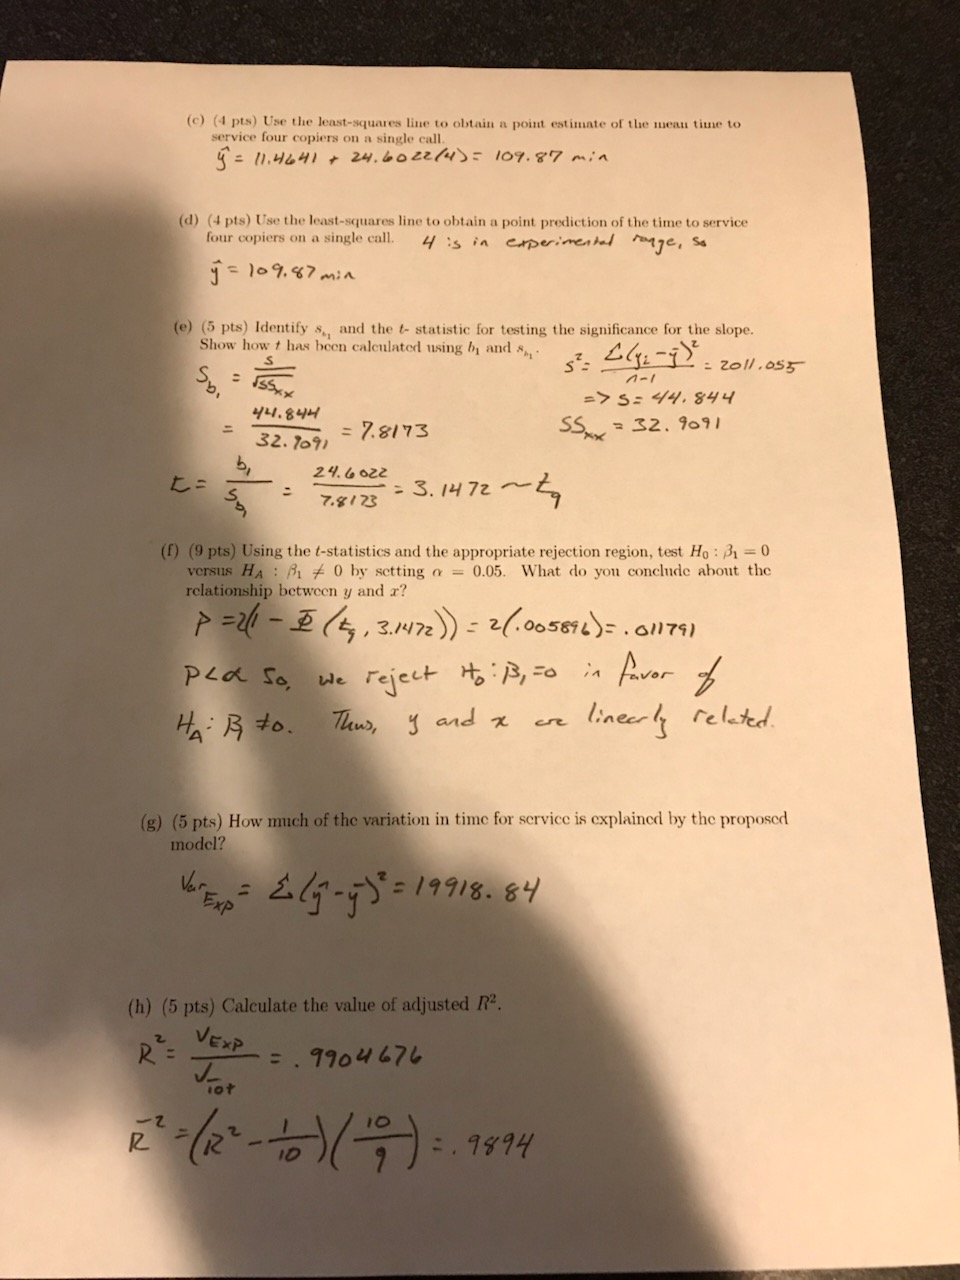 (c) (4 pts) Use the least-squares line to obtain a point estimate of the mean time to
service four copiers on a single call.
ŷ = 11.4641 + 24.6022(4) = 109.87 min
(d) (4 pts) Use the least-squares line to obtain a point prediction of the time to service
four copiers on a single call. 4 is in experimental range, so
ŷ = 109.87 min
(e) (5 pts) Identify s_b₁ and the t- statistic for testing the significance for the slope.
Show how t has been calculated using b₁ and s_b₁.
S_b₁ = S / √SSxx
= 44.844 / 32.9091 = 7.8173
S² = Σ(yᵢ-ȳ)² / n-1 = 2011.055
=> S = 44.844
SSxx = 32.9091
t = b₁ / S_b₁ = 24.6022 / 7.8173 = 3.1472 ~ t₉
(f) (9 pts) Using the t-statistics and the appropriate rejection region, test H₀ : β₁ = 0
versus H_A : β₁ ≠ 0 by setting α = 0.05. What do you conclude about the
relationship between y and x?
P = 2(1 - Φ(t₉, 3.1472)) = 2(.005896) = .011791
P<α So, we reject H₀: β₁=0 in favor of
H_A: β₁ ≠0. Thus, y and x are linearly related.
(g) (5 pts) How much of the variation in time for service is explained by the proposed
model?
Var_Exp = Σ(ŷ-ȳ)² = 19918.84
(h) (5 pts) Calculate the value of adjusted R².
R² = V_Exp / V_Tot = .9904676
R̄² = (R² - 1/10)(10/9) = .9894